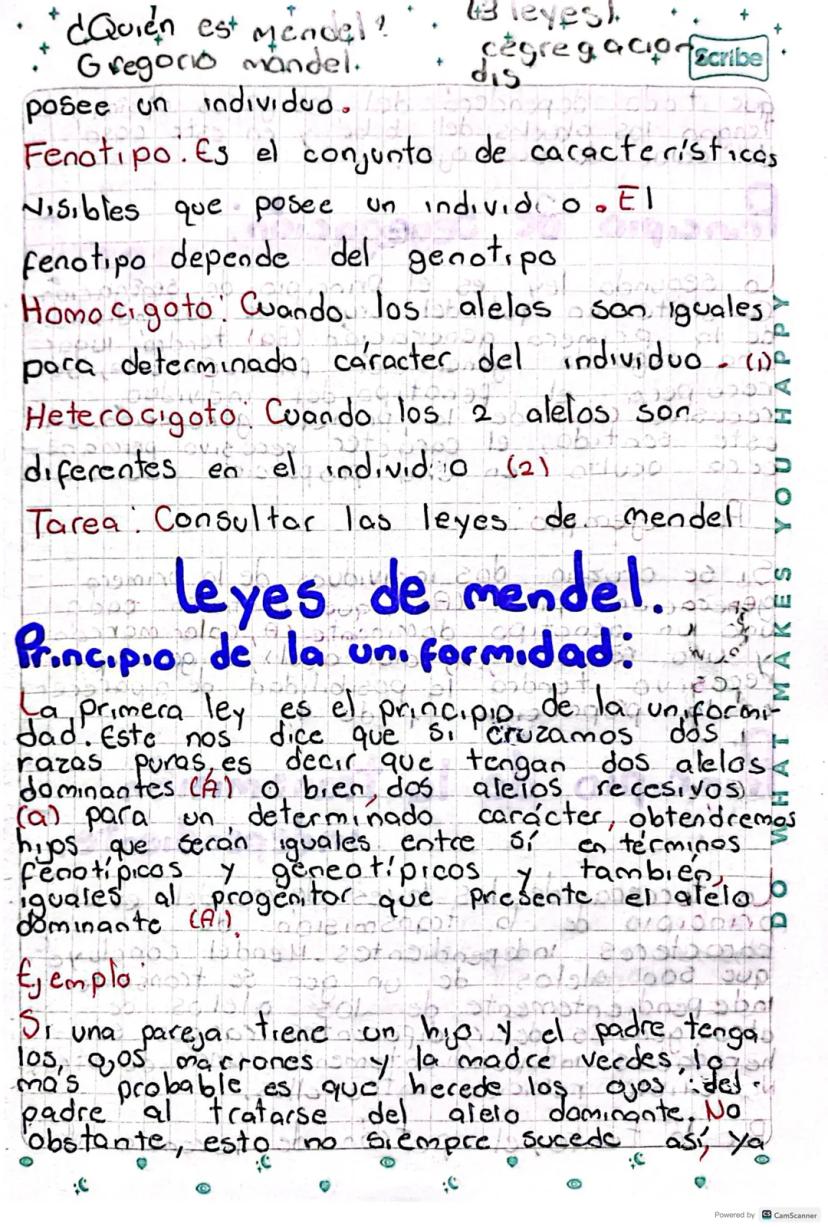 ¿Quién es mendel?
Gregorio mandel.
(3 leyes).
cegregacion
dis
Scribe
posee un individuo.
Fenotipo: Es el conjunto de caracacterísticas
visibles que posee un individio. El
fenotipo depende del genotipo
Homocigoto: Cuando los alelos son iguales
para determinado cáracter del individuo. (1)
Heterocigoto: Cuando los 2 alelos son
diferentes en el individio (2)
Tarea: Consultar las leyes de mendel
leyes de mendel.
Principio de la uniformidad:
La primera ley es el principio de la uniformi-
dad. Este nos dice que si cruzamos dos
razas puras, es decir que tengan dos alelos
dominantes (A) o bien, dos alelos recesivos
(a) para un determinado carácter, obtendremos
hijos que serán iguales entre sí en términos
fenotípicos y géneotípicos y también,
iguales al progenitor que presente el alelo
dominante (A).
Ejemplo:
Si una pareja tiene un hijo y el padre tenga
los ojos marrones y la madre verdes, lo
más probable es que herede los ojos del
padre al tratarse del alelo dominante. No
obstante, esto no siempre sucede así, ya
DO WHAT MAKES YOU HAPPY
Powered by CS CamScanner